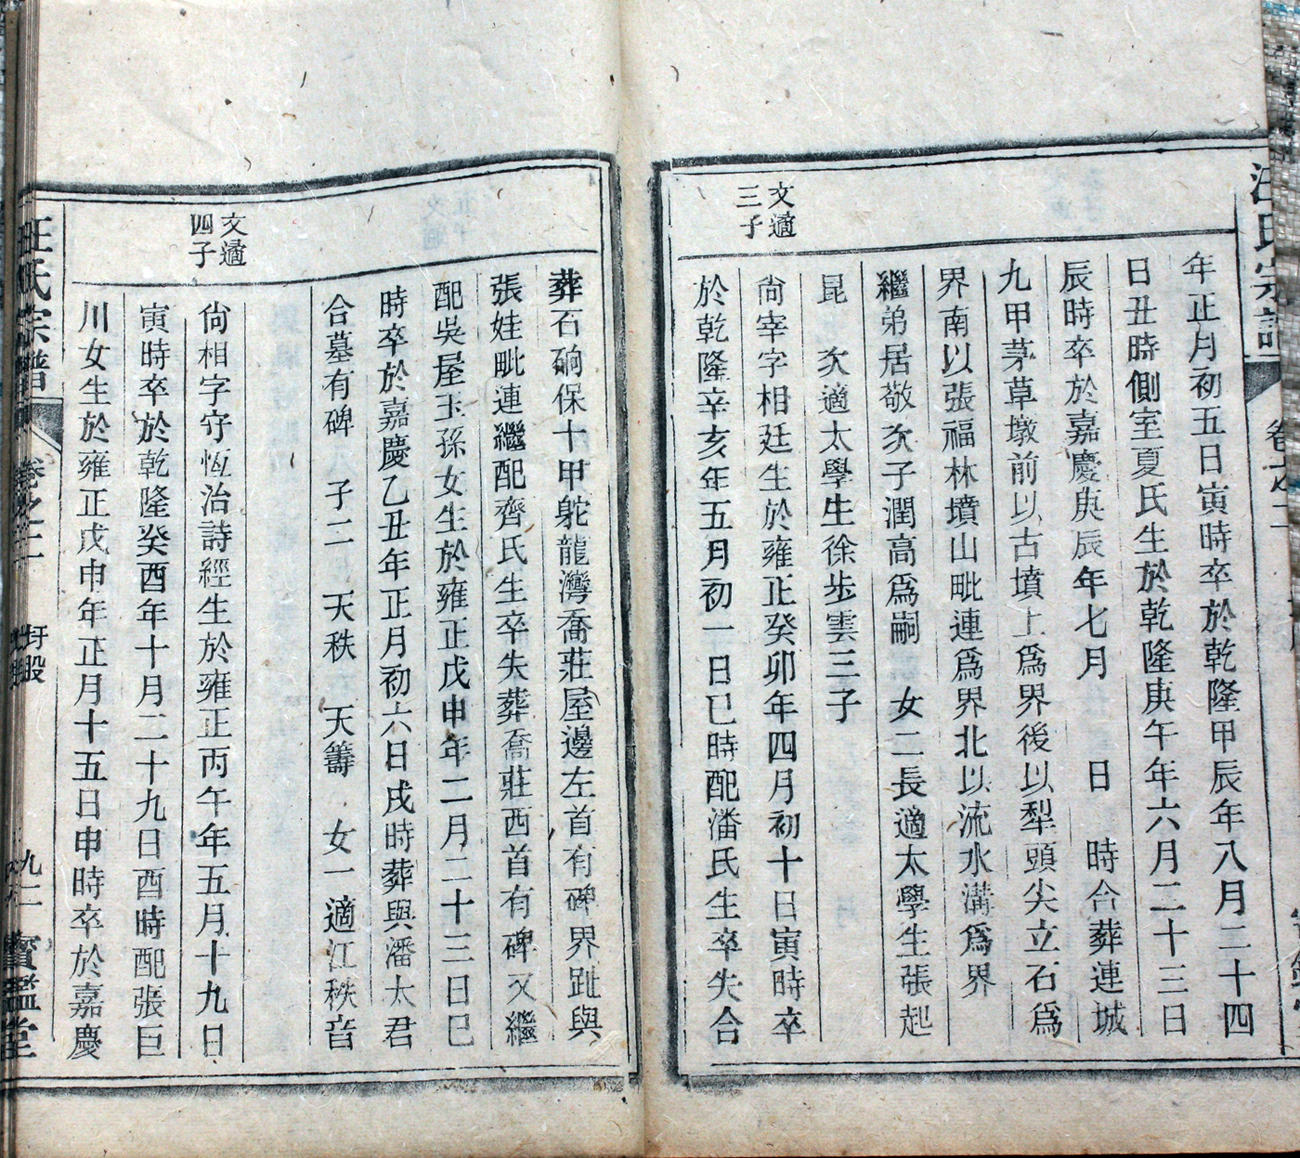 汪氏宗譜
卷之二
年正月初五日寅時卒於乾隆甲辰年八月二十四
日丑時側室夏氏生於乾隆庚午年六月二十三日
辰時卒於嘉慶庚辰年七月 日 時合葬連城
九甲茅草墩前以古墳上爲界後以犁頭尖立石爲
界南以張福林墳山毗連爲界北以流水溝爲界
繼弟居敬次子潤高爲嗣 女二長適太學生張起
昆 次適太學生徐步雲三子
文適
三子
尙宰字相廷生於雍正癸卯年四月初十日寅時卒
於乾隆辛亥年五月初一日巳時配潘氏生卒失合
葬石硝保十甲鴕龍灣喬莊屋邊左首有碑界趾與
張娃毗連繼配齊氏生卒失葬喬莊西首有碑又繼
配吳屋玉孫女生於雍正戊申年二月二十三日巳
時卒於嘉慶乙丑年正月初六日戌時葬與潘太君
合墓有碑 子二 天秩 天籌 女一適江秩音
文適
四子
尙相字守恆治詩經生於雍正丙午年五月十九日
寅時卒於乾隆癸酉年十月二十九日酉時配張巨
川女生於雍正戊申年正月十五日申時卒於嘉慶
汪氏宗譜
卷之二
圩股
九二
寶鑑堂